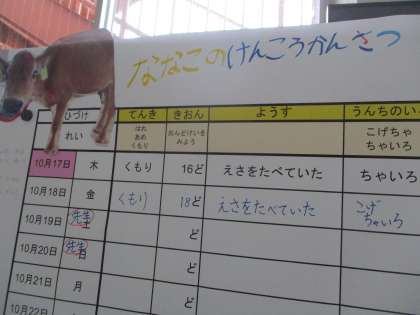 ななこのけんこうかんさつ
ひづけ てんき きおん ようす うんちのい
れい はれ あめ くもり おんどけいを みよう こげちゃ ちゃいろ
10月17日 木 くもり 16ど えさをたべていた ちゃいろ
10月18日 金 くもり 18ど えさをたべていた こげ ちゃいろ
10月19日 先生 土 ど
10月20日 先生 日 ど
10月21日 月 ど
10月22日